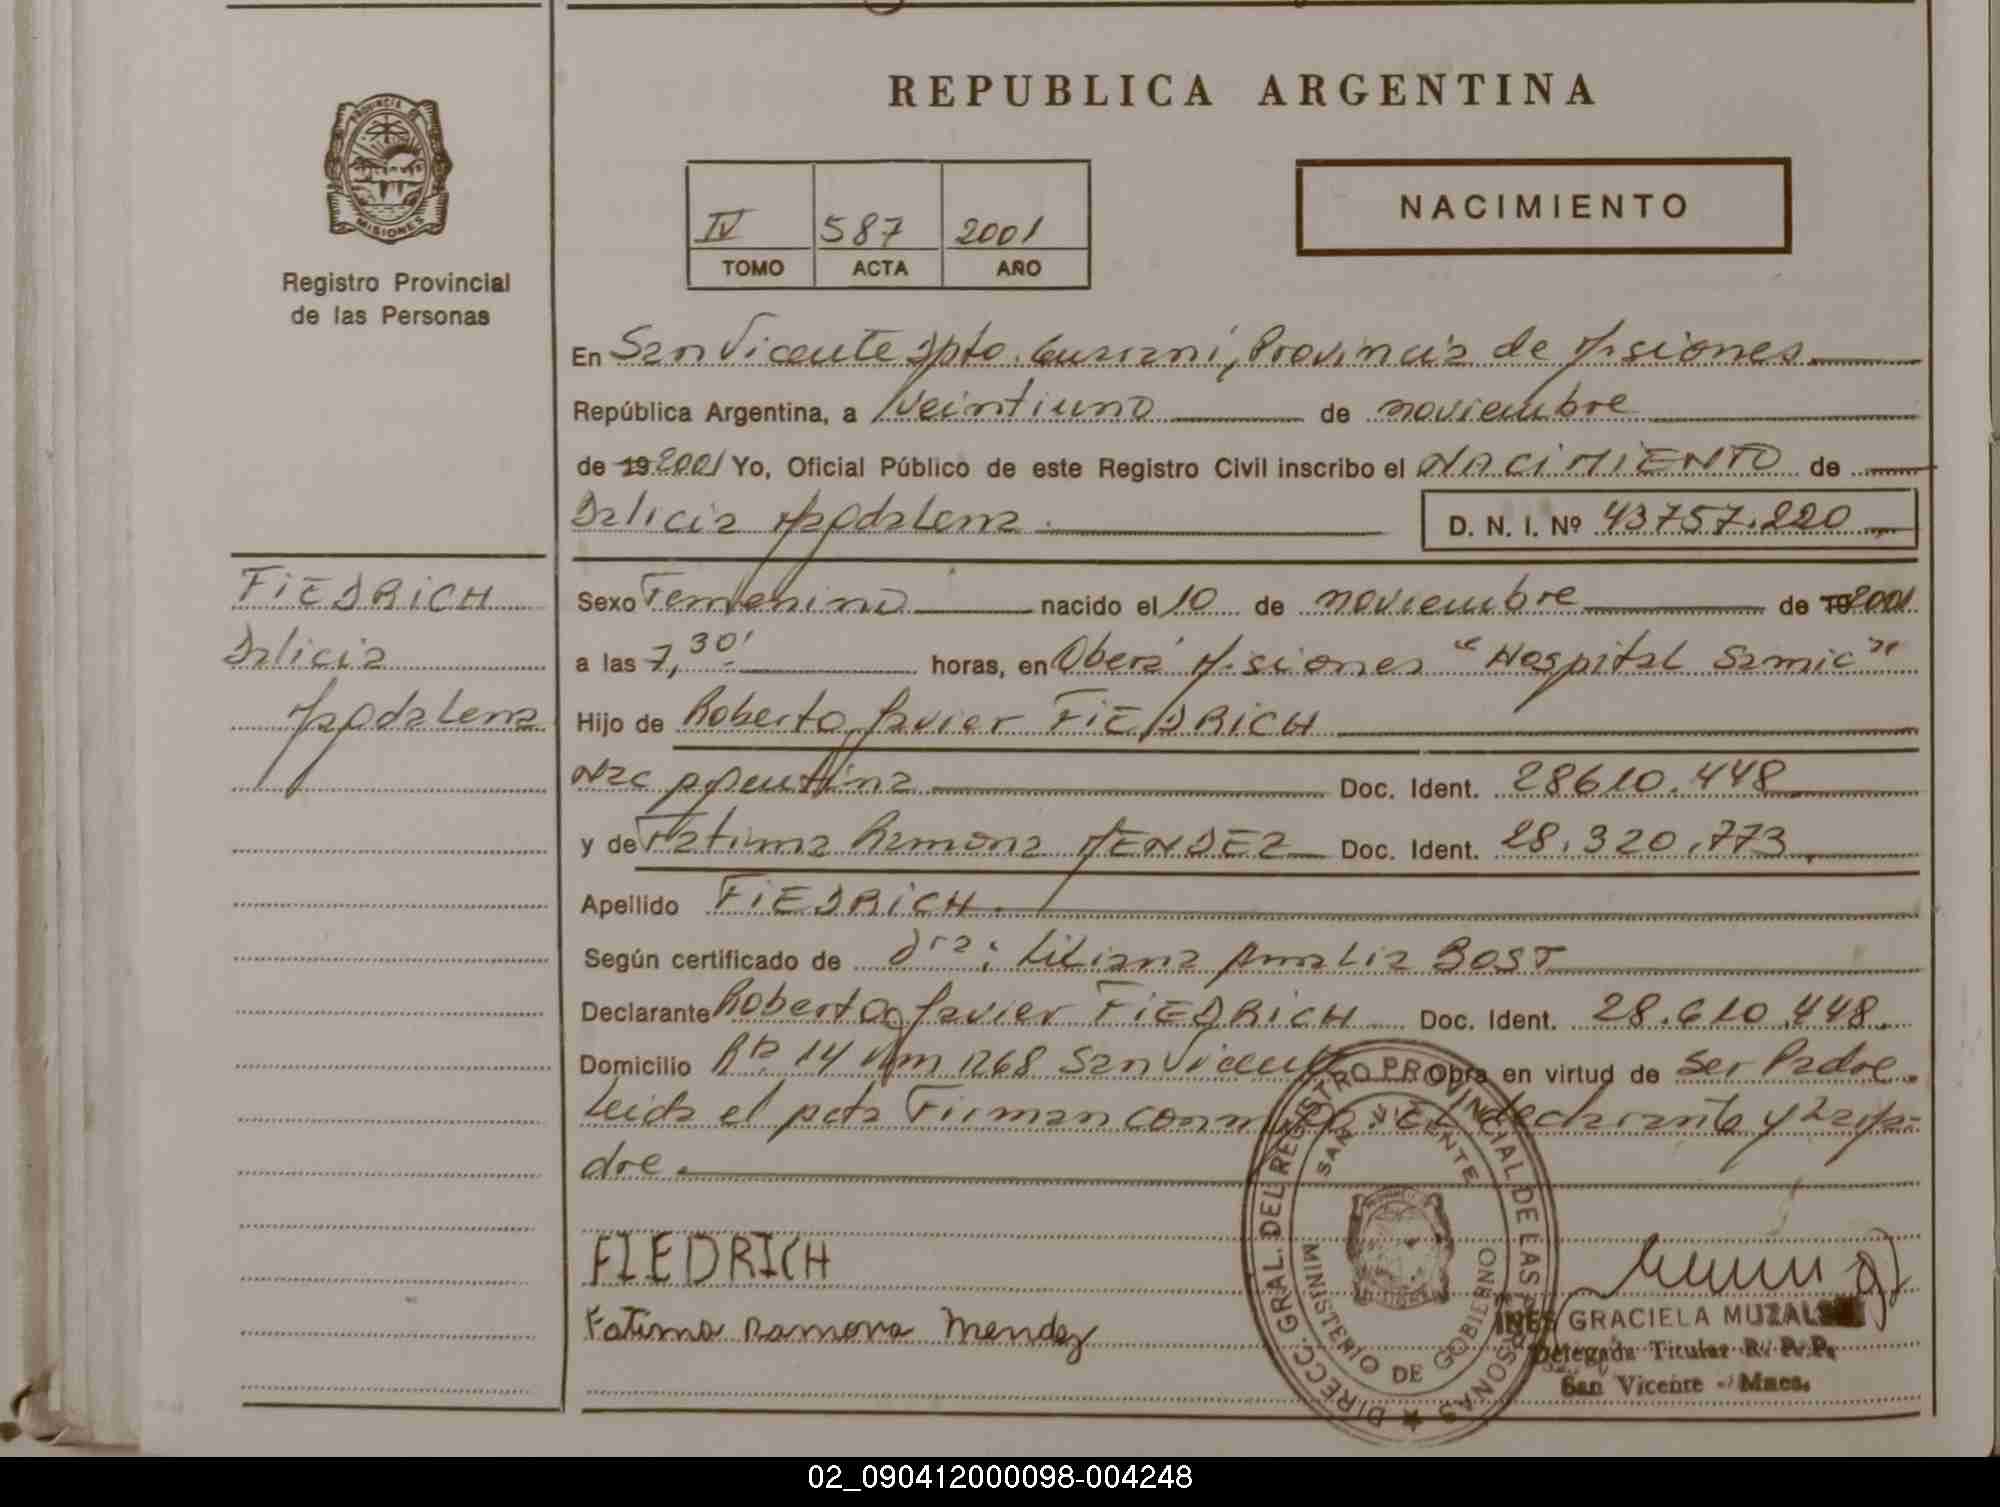 REPUBLICA ARGENTINA
PROVINCIA DE
MISIONES
Registro Provincial
de las Personas
IV 587 2001
TOMO ACTA AÑO
NACIMIENTO
En San Vicente Dpto. Guaraní, Provincia de Misiones
República Argentina, a veintiuno de noviembre
de 19 2001 Yo, Oficial Público de este Registro Civil inscribo el NACIMIENTO de
Dalicia Magdalena. D. N. I. Nº 43757.220
FIEDRICH
Dalicia
Magdalena
Sexo Femenino nacido el 10 de noviembre de 19 2001
a las 7,30' horas, en Oberá Misiones "Hospital Samic"
Hijo de Roberto Javier FIEDRICH
Nac Argentina Doc. Ident. 28610.448
y de Fatima Ramona MENDEZ Doc. Ident. 28.320.773
Apellido FIEDRICH.
Según certificado de dra: Liliana Amalia BOST
Declarante Roberto Javier FIEDRICH Doc. Ident. 28.610.448.
Domicilio Rta 14 Km 1268 San Vicente Obra en virtud de Ser Padre.
Leida el acta Firman conmigo: el declarante y la ma-
dre.
FIEDRICH
Fatima Ramona Mendez
DIRECC. GRAL. DEL REGISTRO PROVINCIAL DE LAS PERSONAS
SAN VICENTE
MINISTERIO DE GOBIERNO
INES GRACIELA
Delegada Titular R. P. P.
San Vicente - Mnes.
02_090412000098-004248